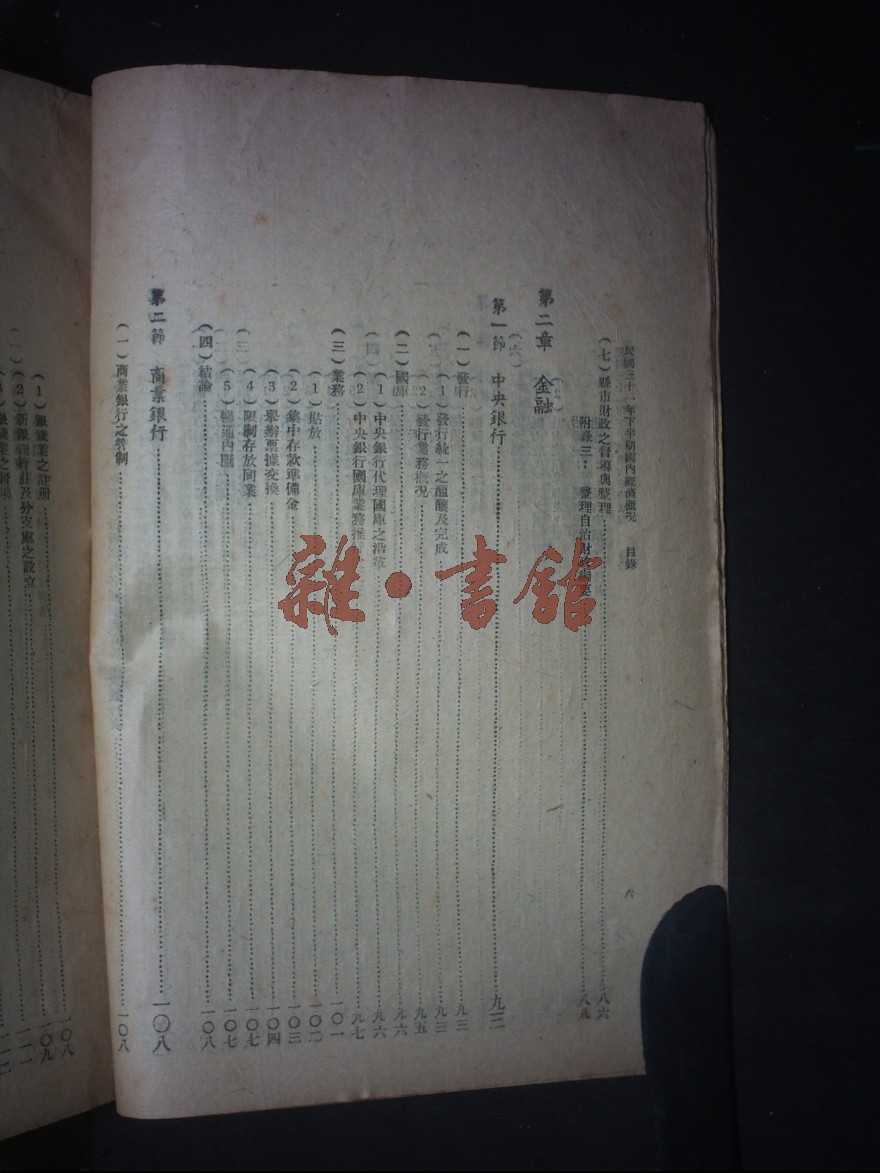 民國三十一年下半期國內經濟概況 目錄 六
(七)縣市財政之督導與整理 八六
附錄三: 整理自治財政 八八
第二章 金融
第一節 中央銀行 九三
(一)發行 九三
(1)發行統一之醞釀及完成 九三
(2)發行業務概況 九五
(二)國庫 九六
(1)中央銀行代理國庫之沿革 九六
(2)中央銀行國庫業務推 九七
(三)業務 一〇一
(1)貼放 一〇二
(2)集中存款準備金 一〇三
(3)舉辦票據交換 一〇四
(4)限制存放同業 一〇七
(5)暢通內匯 一〇七
(四)結論 一〇八
第二節 商業銀行 一〇八
(一)商業銀行之管制 一〇八
(1)銀錢業之註冊 一〇八
(2)新銀行錢莊及分支處之設立 一〇九
雜·書館